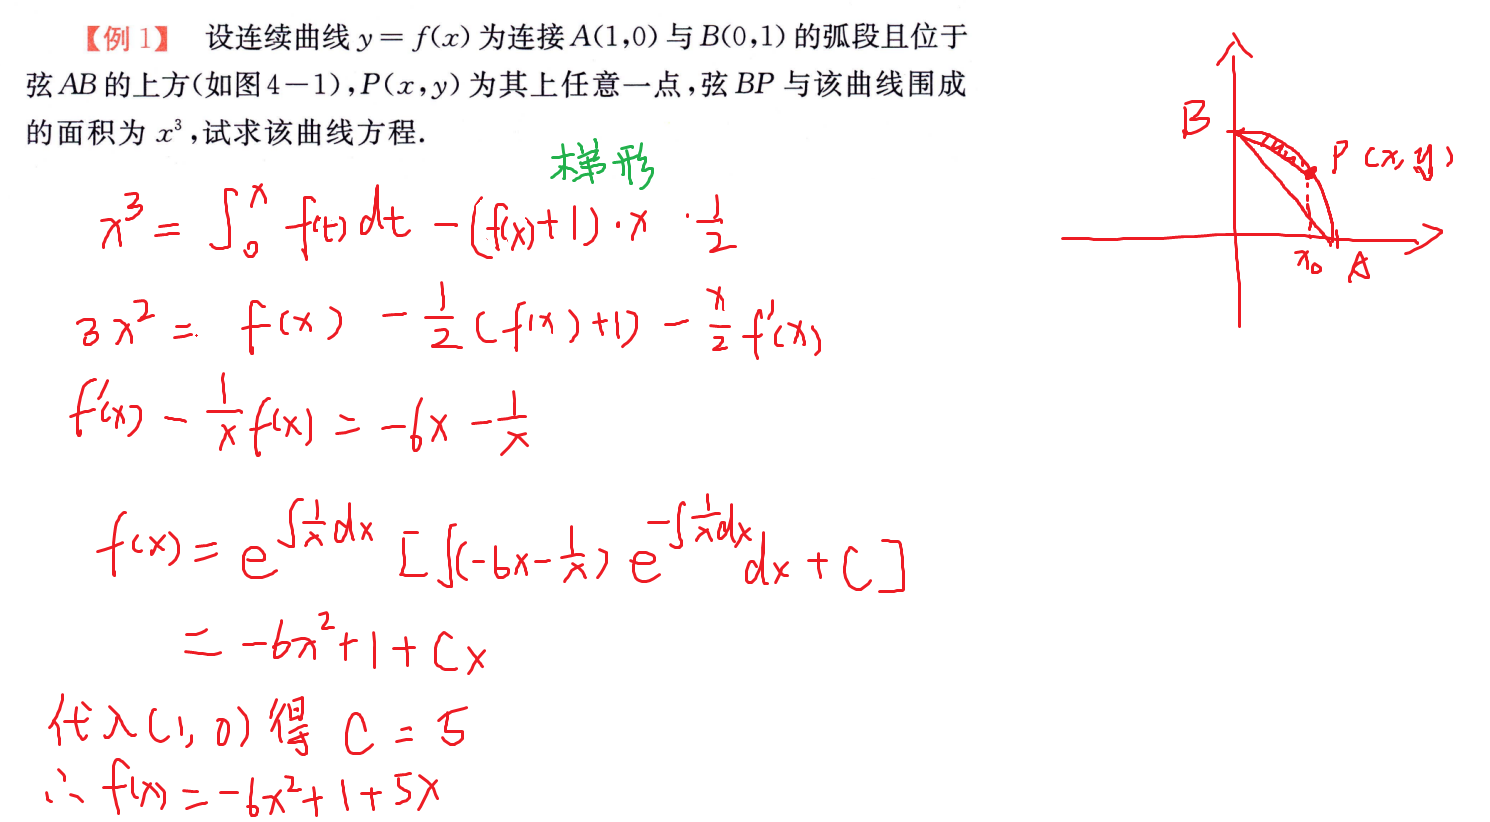 【例1】 设连续曲线 y = f(x) 为连接 A(1,0) 与 B(0,1) 的弧段且位于
弦 AB 的上方(如图4-1),P(x,y) 为其上任意一点,弦 BP 与该曲线围成
的面积为 x³,试求该曲线方程.
梯形
x³ = ∫₀ˣ f(t) dt - (f(x)+1)·x · 1/2
3x² = f(x) - 1/2 (f(x)+1) - x/2 f'(x)
f'(x) - 1/x f(x) = -6x - 1/x
f(x) = e^{∫1/x dx} [∫(-6x - 1/x) e^{-∫1/x dx} dx + C]
= -6x² + 1 + Cx
代入(1,0)得 C = 5
∴ f(x) = -6x² + 1 + 5x
B
P (x,y)
x₀ A